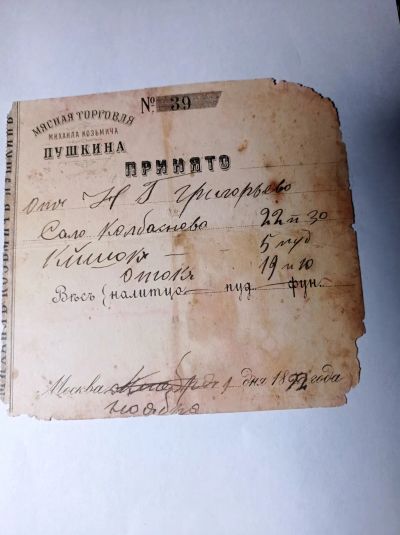 № 39
МЯСНАЯ ТОРГОВЛЯ
МИХАИЛА КОЗЬМИЧА
ПУШКИНА
ПРИНЯТО
Н Г Григорьево
Сало Колбаснево 22 п 30
5 пуд
Отока 19 п 10
Вѣсъ (налитцо пуд. фун.
Москва дня 1892 года
ноября